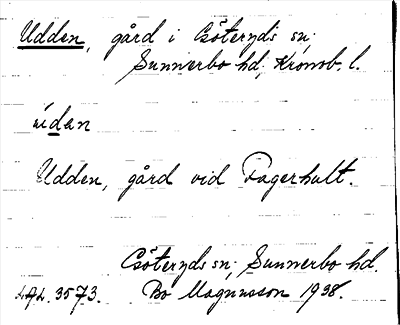 Udden, gård i Göteryds sn,
Sunnerbo hd, Kronob. l.
ùdan
Udden, gård vid Fagerhult.
Göteryds sn, Sunnerbo hd.
3573. Bo Magnusson 1938.